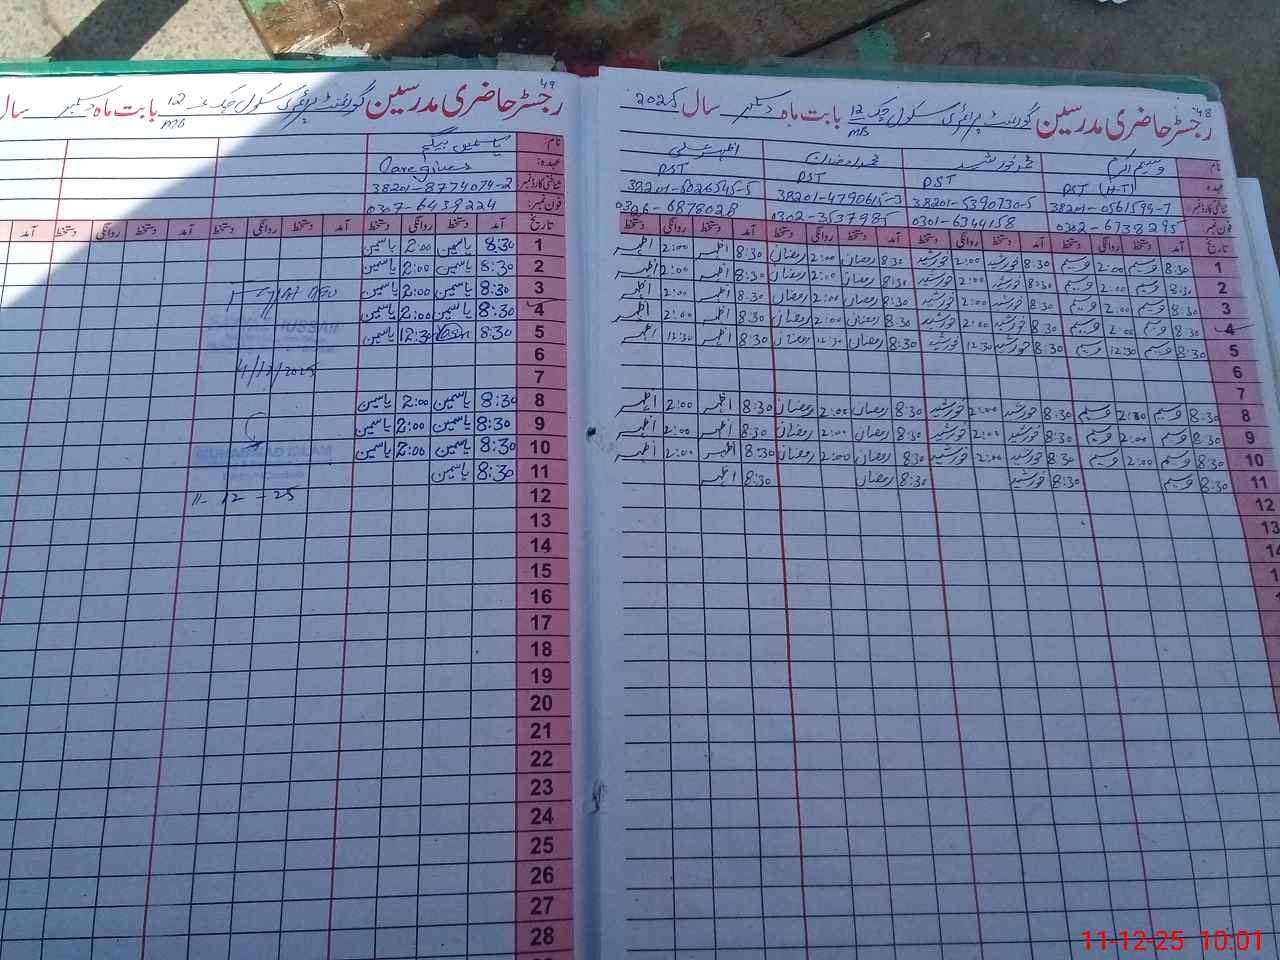 48
رجسٹر حاضری مدرسین گورنمنٹ پرائمری سکول چک 12 MB بابت ماہ دسمبر سال 2025
نام: وسیم اکرم محمد خورشید محمد رمضان اظہر علی
عہدہ PST (H-T) PST PST PST
شناختی کارڈ نمبر 38201-0561599-7 38201-5390730-5 38201-4790615-3 38201-5026545-5
فون نمبر 0302-6738295 0301-6344158 0302-3537985 0306-6878028
تاریخ آمد دستخط روانگی دستخط آمد دستخط روانگی دستخط آمد دستخط روانگی دستخط آمد دستخط روانگی دستخط
1 8:30 وسیم 2:00 وسیم 8:30 خورشید 2:00 خورشید 8:30 رمضان 2:00 رمضان 8:30 اظہر 2:00 اظہر
2 8:30 وسیم 2:00 وسیم 8:30 خورشید 2:00 خورشید 8:30 رمضان 2:00 رمضان 8:30 اظہر 2:00 اظہر
3 8:30 وسیم 2:00 وسیم 8:30 خورشید 2:00 خورشید 8:30 رمضان 2:00 رمضان 8:30 اظہر 2:00 اظہر
4 8:30 وسیم 2:00 وسیم 8:30 خورشید 2:00 خورشید 8:30 رمضان 2:00 رمضان 8:30 اظہر 2:00 اظہر
5 8:30 وسیم 12:30 وسیم 8:30 خورشید 12:30 خورشید 8:30 رمضان 12:30 رمضان 8:30 اظہر 12:30 اظہر
6
7
8 8:30 وسیم 2:00 وسیم 8:30 خورشید 2:00 خورشید 8:30 رمضان 2:00 رمضان 8:30 اظہر 2:00 اظہر
9 8:30 وسیم 2:00 وسیم 8:30 خورشید 2:00 خورشید 8:30 رمضان 2:00 رمضان 8:30 اظہر 2:00 اظہر
10 8:30 وسیم 2:00 وسیم 8:30 خورشید 2:00 خورشید 8:30 رمضان 2:00 رمضان 8:30 اظہر 2:00 اظہر
11 8:30 وسیم 8:30 خورشید 8:30 رمضان 8:30 اظہر
12
13
49
رجسٹر حاضری مدرسین گورنمنٹ پرائمری سکول چک نمبر 12 MB بابت ماہ دسمبر سال
نام: یاسمین بیگم
عہدہ: Caregiver
شناختی کارڈ نمبر 38201-8774074-2
فون نمبر: 0307-6438224
تاریخ آمد دستخط روانگی دستخط آمد دستخط روانگی دستخط آمد دستخط روانگی دستخط آمد
1 8:30 یاسمین 2:00 یاسمین
2 8:30 یاسمین 2:00 یاسمین
3 8:30 یاسمین 2:00 یاسمین
4 8:30 یاسمین 2:00 یاسمین
5 8:30 12:30 یاسمین
6
7
8 8:30 یاسمین 2:00 یاسمین
9 8:30 یاسمین 2:00 یاسمین
10 8:30 یاسمین 2:00 یاسمین
11 8:30 یاسمین
12
13
14
15
16
17
18
19
20
21
22
23
24
25
26
27
28
HUSSAIN
4/12/2025
MUHAMMAD ISLAM
11-12-25
11-12-25 10:01